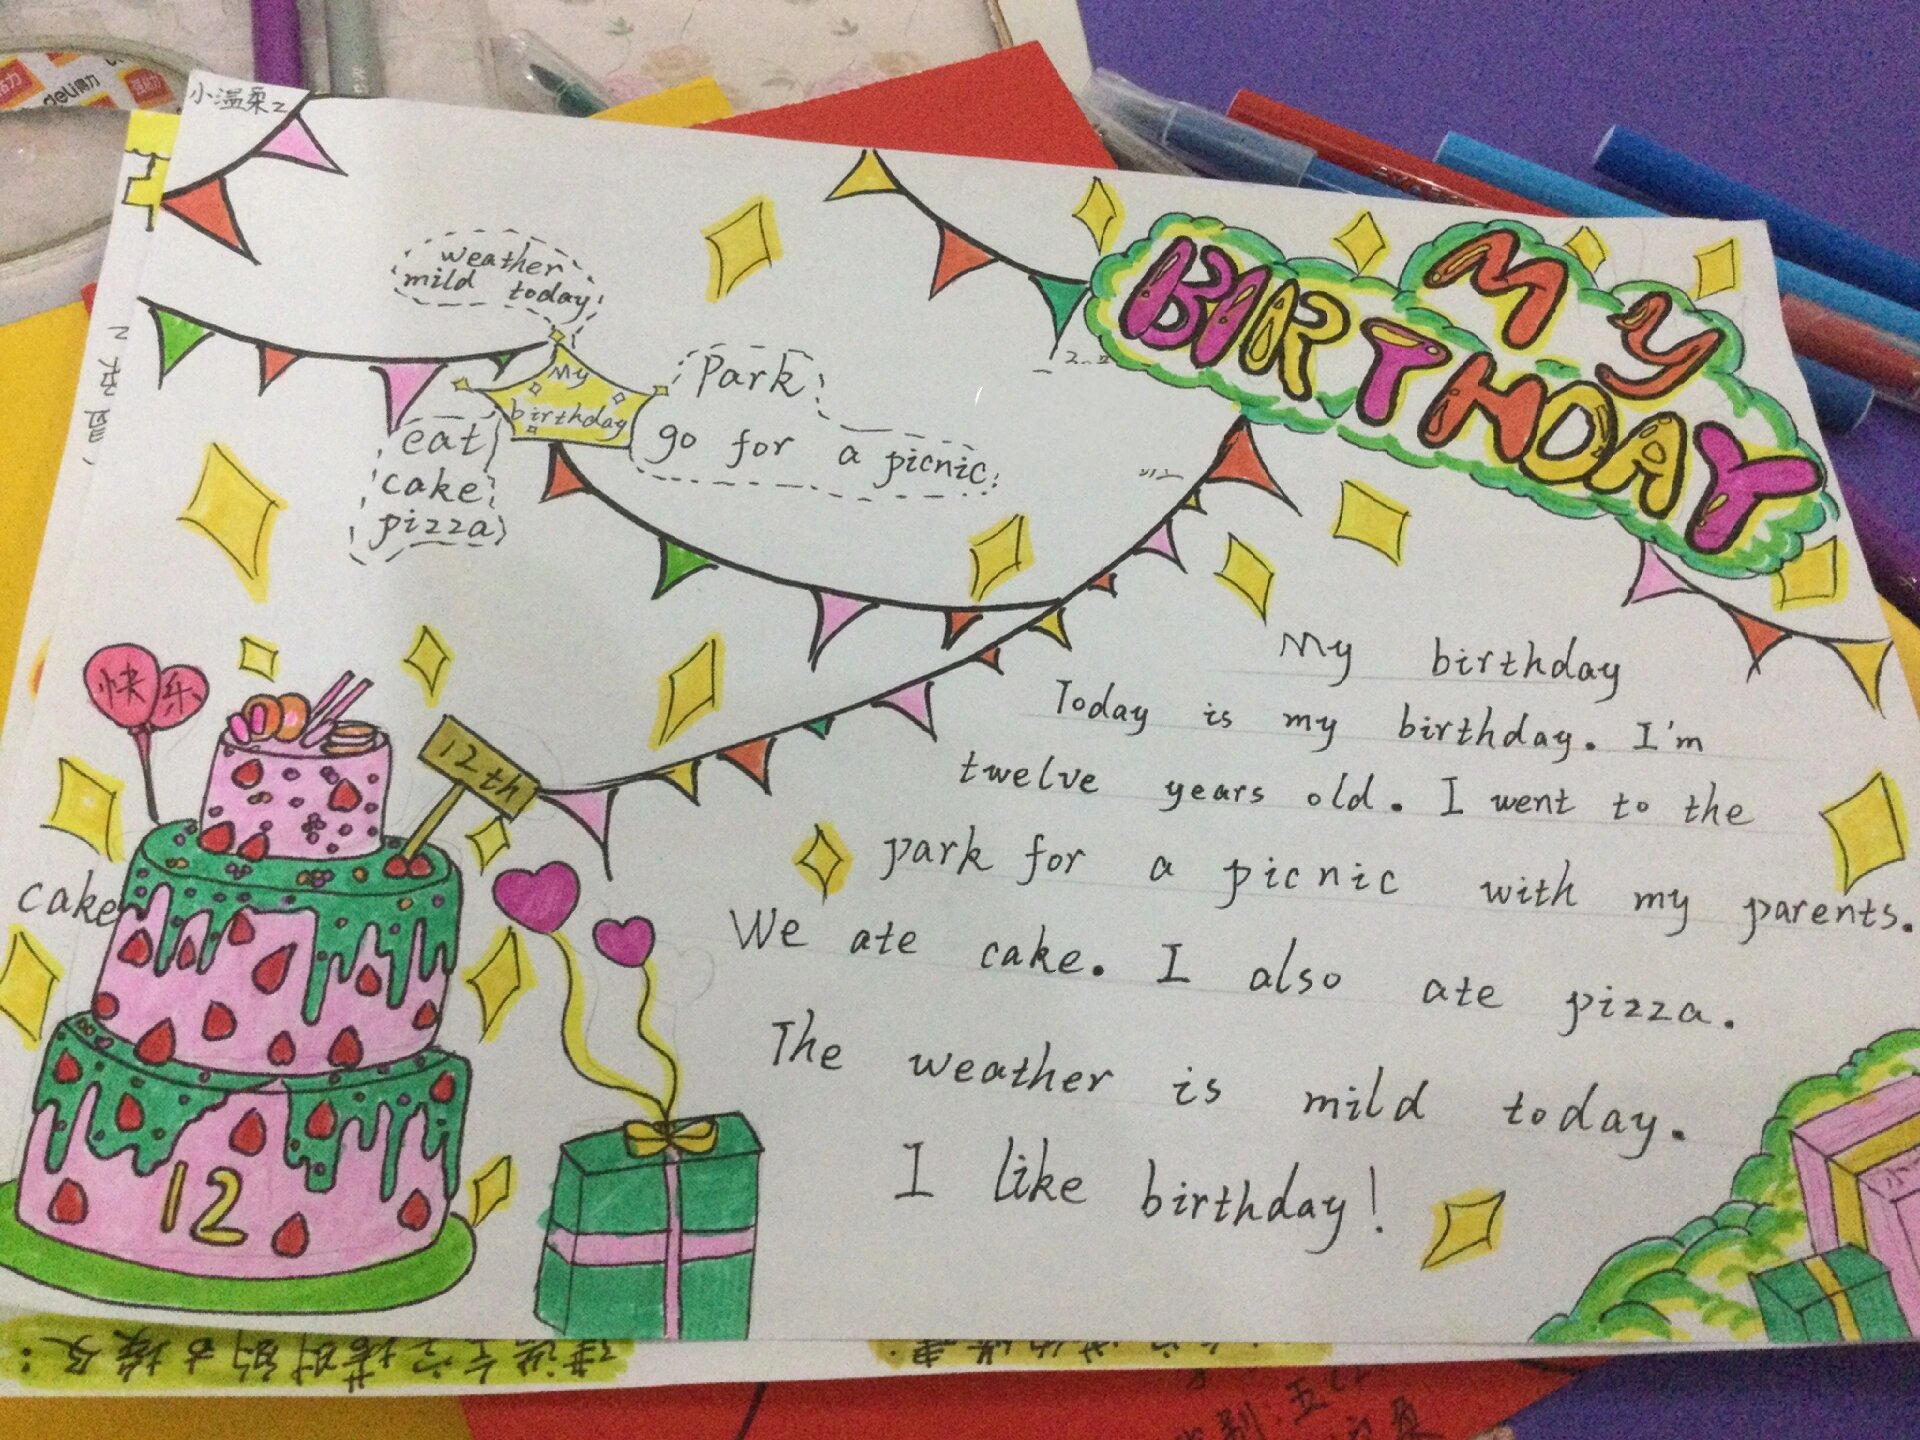 小温柔
MY
BIRTHDAY
weather
mild today
My
birthday
Park
go for a picnic
eat
cake
pizza
快乐
12th
cake
12
My birthday
Today is my birthday. I'm
twelve years old. I went to the
park for a picnic with my parents.
We ate cake. I also ate pizza.
The weather is mild today.
I like birthday!
deli得力